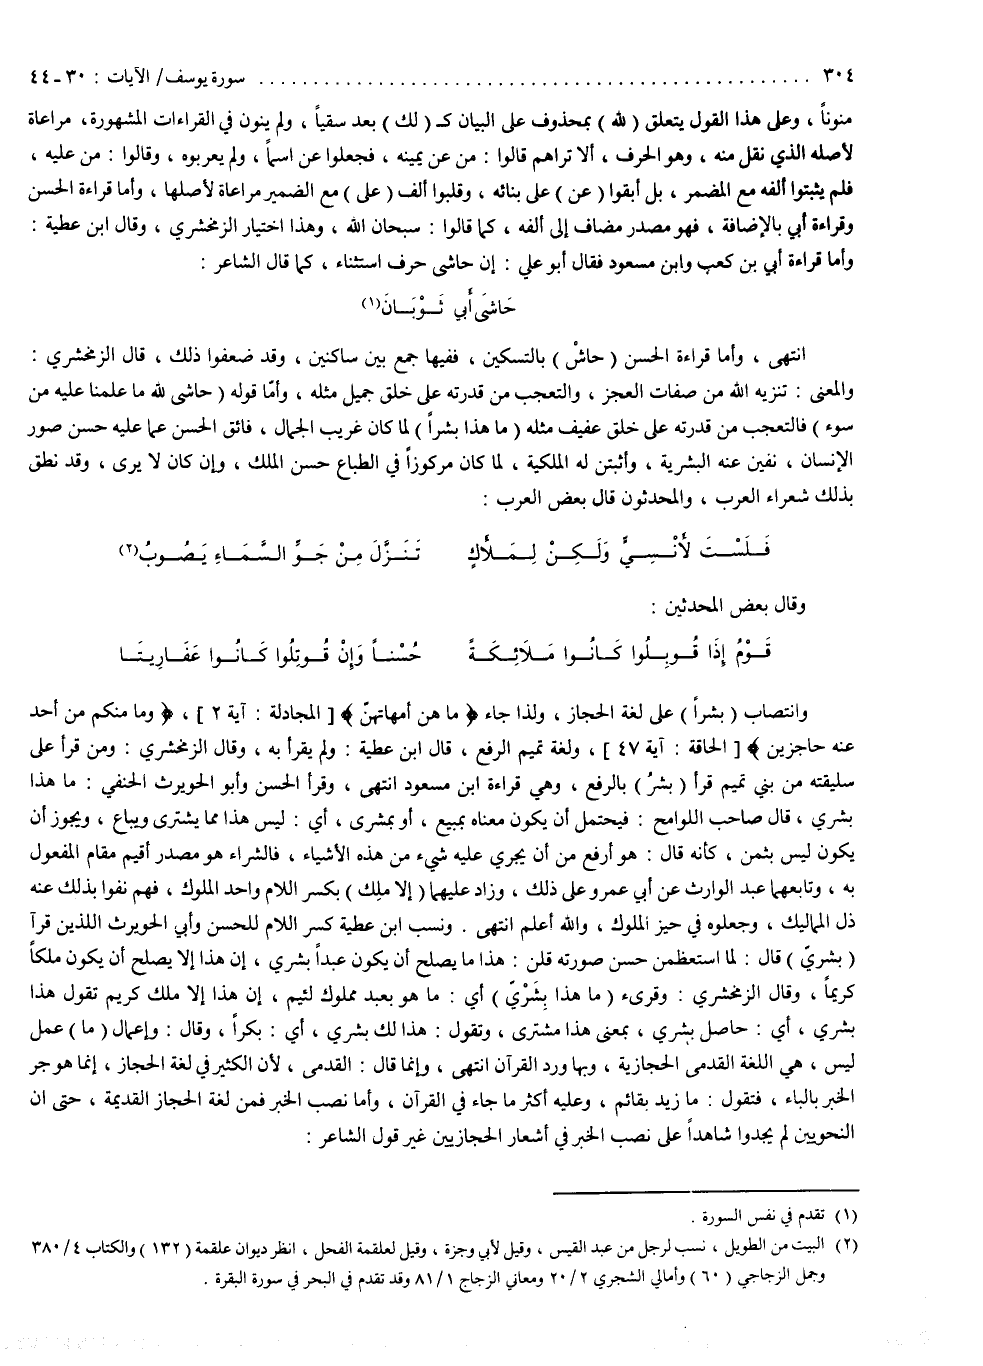 ٣٠٤ ........................ سورة يوسف/ الآيات : ٣٠ـ٤٤
منوناً ، وعلى هذا القول يتعلق ( لله ) بمحذوف على البيان كـ ( لك ) بعد سقياً ، ولم ينون في القراءات المشهورة، مراعاة
لأصله الذي نقل منه ، وهو الحرف ، ألا تراهم قالوا : من عن يمينه ، فجعلوا عن اسماً ، ولم يعربوه ، وقالوا : من عليه ،
فلم يثبتوا ألفه مع المضمر ، بل أبقوا ( عن ) على بنائه ، وقلبوا ألف ( على ) مع الضمير مراعاة لأصلها ، وأما قراءة الحسن
وقراءة أبي بالإضافة ، فهو مصدر مضاف إلى ألفه ، كما قالوا : سبحان الله ، وهذا اختيار الزمخشري ، وقال ابن عطية :
وأما قراءة أبي بن كعب وابن مسعود فقال أبو علي : إن حاشى حرف استثناء ، كما قال الشاعر :
حَاشَى أَبِي ثَوْبَانَ(١)
انتهى ، وأما قراءة الحسن ( حاشْ ) بالتسكين ، ففيها جمع بين ساكنين ، وقد ضعفوا ذلك ، قال الزمخشري :
والمعنى : تنزيه الله من صفات العجز ، والتعجب من قدرته على خلق جميل مثله ، وأمّا قوله ( حاشى لله ما علمنا عليه من
سوء ) فالتعجب من قدرته على خلق عفيف مثله ( ما هذا بشراً ) لما كان غريب الجمال ، فائق الحسن عما عليه حسن صور
الإنسان ، نفين عنه البشرية ، وأثبتن له الملكية ، لما كان مركوزاً في الطباع حسن الملك ، وإن كان لا يرى ، وقد نطق
بذلك شعراء العرب ، والمحدثون قال بعض العرب :
فَلَسْتَ لأَنْسِيٍّ وَلَكِنْ لِمَلأَكٍ تَنَزَّلَ مِنْ جَوِّ السَّمَاءِ يَصُوبُ(٢)
وقال بعض المحدثين :
قَوْمٌ إِذَا قُوبِلُوا كَانُوا مَلَائِكَةً حُسْناً وَإِنْ قُوتِلُوا كَانُوا عَفَارِيتَا
وانتصاب ( بشراً ) على لغة الحجاز ، ولذا جاء ﴿ ما هن أمهاتهنّ ﴾ [ المجادلة : آية ٢ ] ، ﴿ وما منكم من أحد
عنه حاجزين ﴾ [ الحاقة : آية ٤٧ ] ، ولغة تميم الرفع ، قال ابن عطية : ولم يقرأ به ، وقال الزمخشري : ومن قرأ على
سليقته من بني تميم قرأ ( بشرٌ ) بالرفع ، وهي قراءة ابن مسعود انتهى ، وقرأ الحسن وأبو الحويرث الحنفي : ما هذا
بشري ، قال صاحب اللوامح : فيحتمل أن يكون معناه بمبيع ، أو بمشرى ، أي : ليس هذا مما يشترى ويباع ، ويجوز أن
يكون ليس بثمن ، كأنه قال : هو أرفع من أن يجري عليه شيء من هذه الأشياء ، فالشراء هو مصدر أقيم مقام المفعول
به ، وتابعهما عبد الوارث عن أبي عمرو على ذلك ، وزاد عليهما ( إلا ملِك ) بكسر اللام واحد الملوك ، فهم نفوا بذلك عنه
ذل المماليك ، وجعلوه في حيز الملوك ، والله أعلم انتهى . ونسب ابن عطية كسر اللام للحسن وأبي الحويرث اللذين قرآ
( بشريّ ) قال : لما استعظمن حسن صورته قلن : هذا ما يصلح أن يكون عبداً بشري ، إن هذا إلا يصلح أن يكون ملكاً
كريماً ، وقال الزمخشري : وقرىء ( ما هذا بِشَرْيّ ) أي : ما هو بعبد مملوك لئيم ، إن هذا إلا ملك كريم تقول هذا
بشري ، أي : حاصل بشري ، بمعنى هذا مشترى ، وتقول : هذا لك بشري ، أي : بكراً ، وقال : وإعمال ( ما ) عمل
ليس ، هي اللغة القدمى الحجازية ، وبها ورد القرآن انتهى ، وإنما قال : القدمى ، لأن الكثير في لغة الحجاز ، إنما هو جر
الخبر بالباء ، فتقول : ما زيد بقائم ، وعليه أكثر ما جاء في القرآن ، وأما نصب الخبر فمن لغة الحجاز القديمة ، حتى ان
النحويين لم يجدوا شاهداً على نصب الخبر في أشعار الحجازيين غير قول الشاعر :
(١) تقدم في نفس السورة .
(٢) البيت من الطويل ، نسب لرجل من عبد القيس ، وقيل لأبي وجزة ، وقيل لعلقمة الفحل ، انظر ديوان علقمة ( ١٣٢ ) والكتاب ٣٨٠/٤
وجمل الزجاجي ( ٦٠ ) وأمالي الشجري ٢٠/٢ ومعاني الزجاج ٨١/١ وقد تقدم في البحر في سورة البقرة .